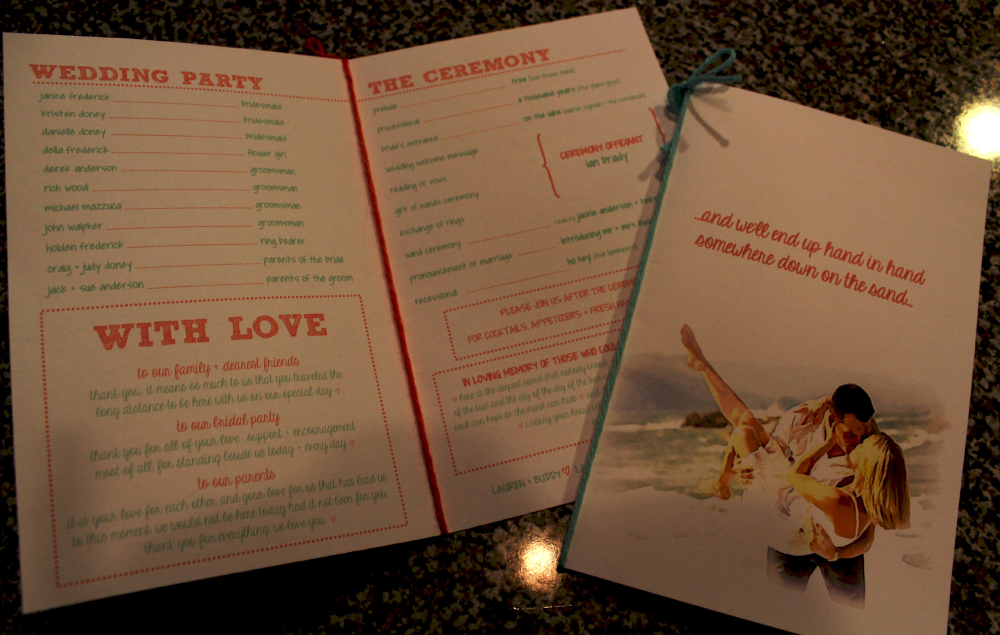 WEDDING PARTY
janice frederick bridesmaid
kristen doney bridesmaid
danielle doney bridesmaid
della frederick flower girl
derek anderson groomsman
rich wood groomsman
michael mazzuca groomsman
john walpher groomsman
holden frederick ring bearer
craig + judy doney parents of the bride
jack + sue anderson parents of the groom
WITH LOVE
to our family + dearest friends
thank you. it means so much to us that you traveled the
long distance to be here with us on our special day ♡
to our bridal party
thank you for all of your love, support + encouragement
most of all for standing beside us today + every day ♡
to our parents
it is your love for each other, and your love for us that has lead us
to this moment. we would not be here today had it not been for you.
thank you for everything. we love you. ♡
THE CEREMONY
prelude
processional a thousand years
bride's entrance on the lake
wedding welcome message
reading of vows
gift of hands ceremony
exchange of rings
sand ceremony jackie anderson +
pronouncement of marriage introducing mr + mrs
recessional ho hey
CEREMONY OFFICIANT
ian brady
PLEASE JOIN US AFTER THE
FOR COCKTAILS, APPETIZERS + FRESH
IN LOVING MEMORY OF THOSE WHO
♡ here is the deepest secret that nobody
of the bud and the sky of the sky of the
soul can hope or the mind can hide ♡
LAUREN + BUDDY ♡
...and we'll end up hand in hand
somewhere down on the sand...